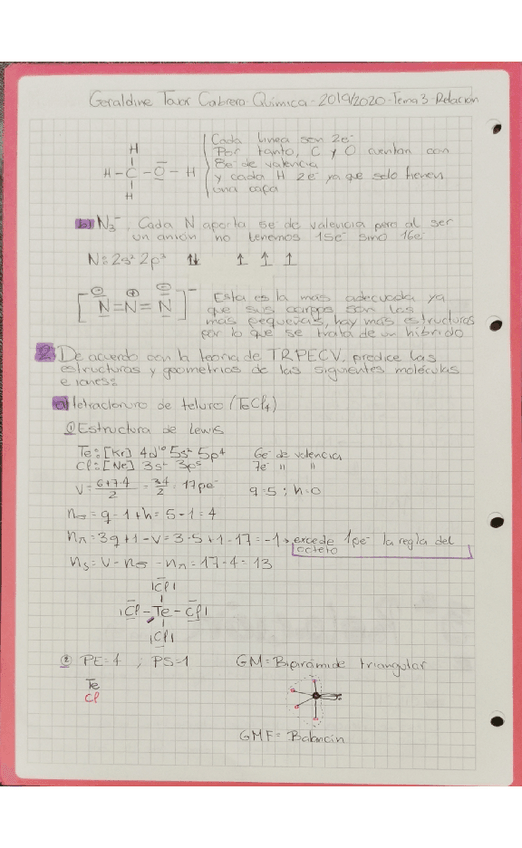 Geraldine Tavor Cabrero Química - 2019/2020 - Tema 3 - Relación
H
H-C-O-H
H
Cada línea son 2e⁻
Por tanto, C y O cuentan con
8e⁻ de valencia
y cada H 2e⁻ ya que solo tienen
una capa
b) N₃⁻. Cada N aporta 5e⁻ de valencia pero al ser
un anión no tenemos 15e⁻ sino 16e⁻
N: 2s² 2p³ ↑↓ ↑ ↑ ↑
[N=N=N]⁻
Esta es la más adecuada ya
que sus cargas son las
más pequeñas, hay más estructuras
por lo que se trata de un híbrido
2 De acuerdo con la teoría de TRPECV, predice las
estructuras y geometrías de las siguientes moléculas
e iones:
a) tetracloruro de teluro (TeCl₄)
① Estructura de Lewis
Te: [Kr] 4d¹⁰ 5s² 5p⁴ 6e⁻ de valencia
Cl: [Ne] 3s² 3p⁵ 7e⁻ " "
V = 6+7·4/2 = 34/2 = 17pe⁻ q=5; h=0
nσ = q-1+h = 5-1 = 4
nπ = 3q+1-V = 3·5+1-17 = -1 → excede 1pe⁻ la regla del
octeto
nₛ = V-nσ-nπ = 17-4 = 13
|Cl|
|Cl-Te-Cl|
|Cl|
② PE=4 ; PS=1 GM= Bipirámide triangular
Te
Cl
GMF= Balancín